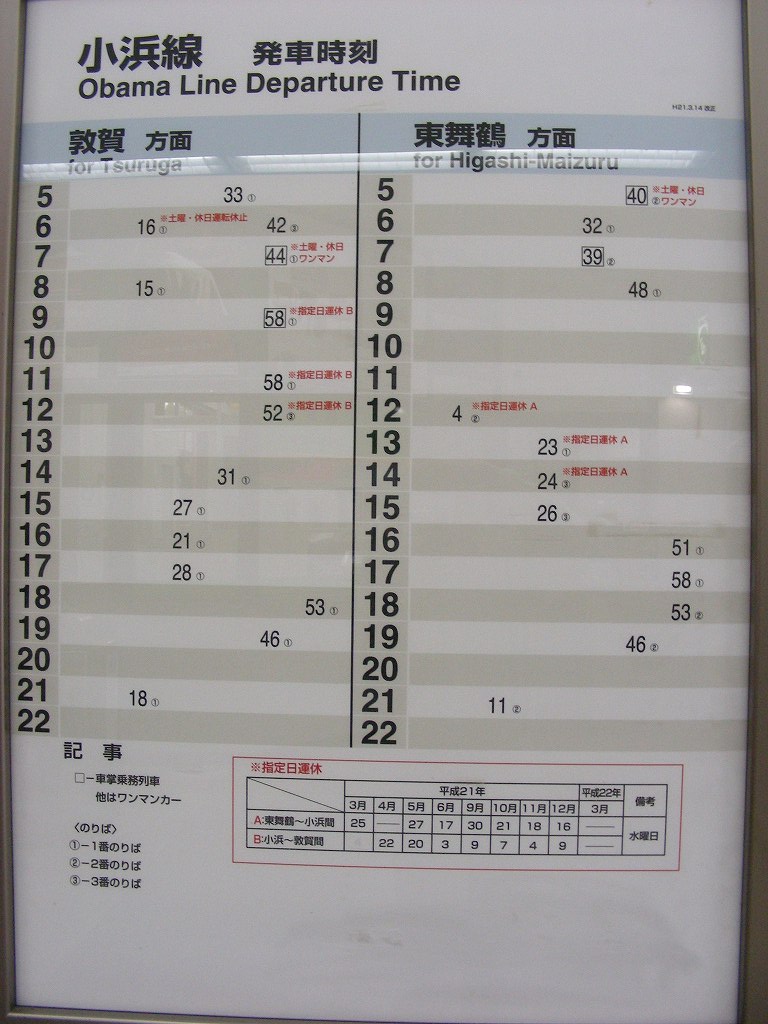 小浜線 発車時刻
Obama Line Departure Time
H21.3.14 改正
敦賀 方面
for Tsuruga
5 33①
6 16① ※土曜・休日運転休止 42③
7 44① ※土曜・休日ワンマン
8 15①
9 58① ※指定日運休 B
10
11 58① ※指定日運休 B
12 52③ ※指定日運休 B
13
14 31①
15 27①
16 21①
17 28①
18 53①
19 46①
20
21 18①
22
東舞鶴 方面
for Higashi-Maizuru
5 40② ※土曜・休日ワンマン
6 32①
7 39②
8 48①
9
10
11
12 4② ※指定日運休 A
13 23① ※指定日運休 A
14 24③ ※指定日運休 A
15 26③
16 51①
17 58①
18 53②
19 46②
20
21 11②
22
記 事
□−車掌乗務列車
他はワンマンカー
〈のりば〉
①−1番のりば
②−2番のりば
③−3番のりば
※指定日運休
平成21年 平成22年 備考
3月 4月 5月 6月 9月 10月 11月 12月 3月
A:東舞鶴〜小浜間 25 — 27 17 30 21 18 16 — 水曜日
B:小浜〜敦賀間 22 20 3 9 7 4 9 —